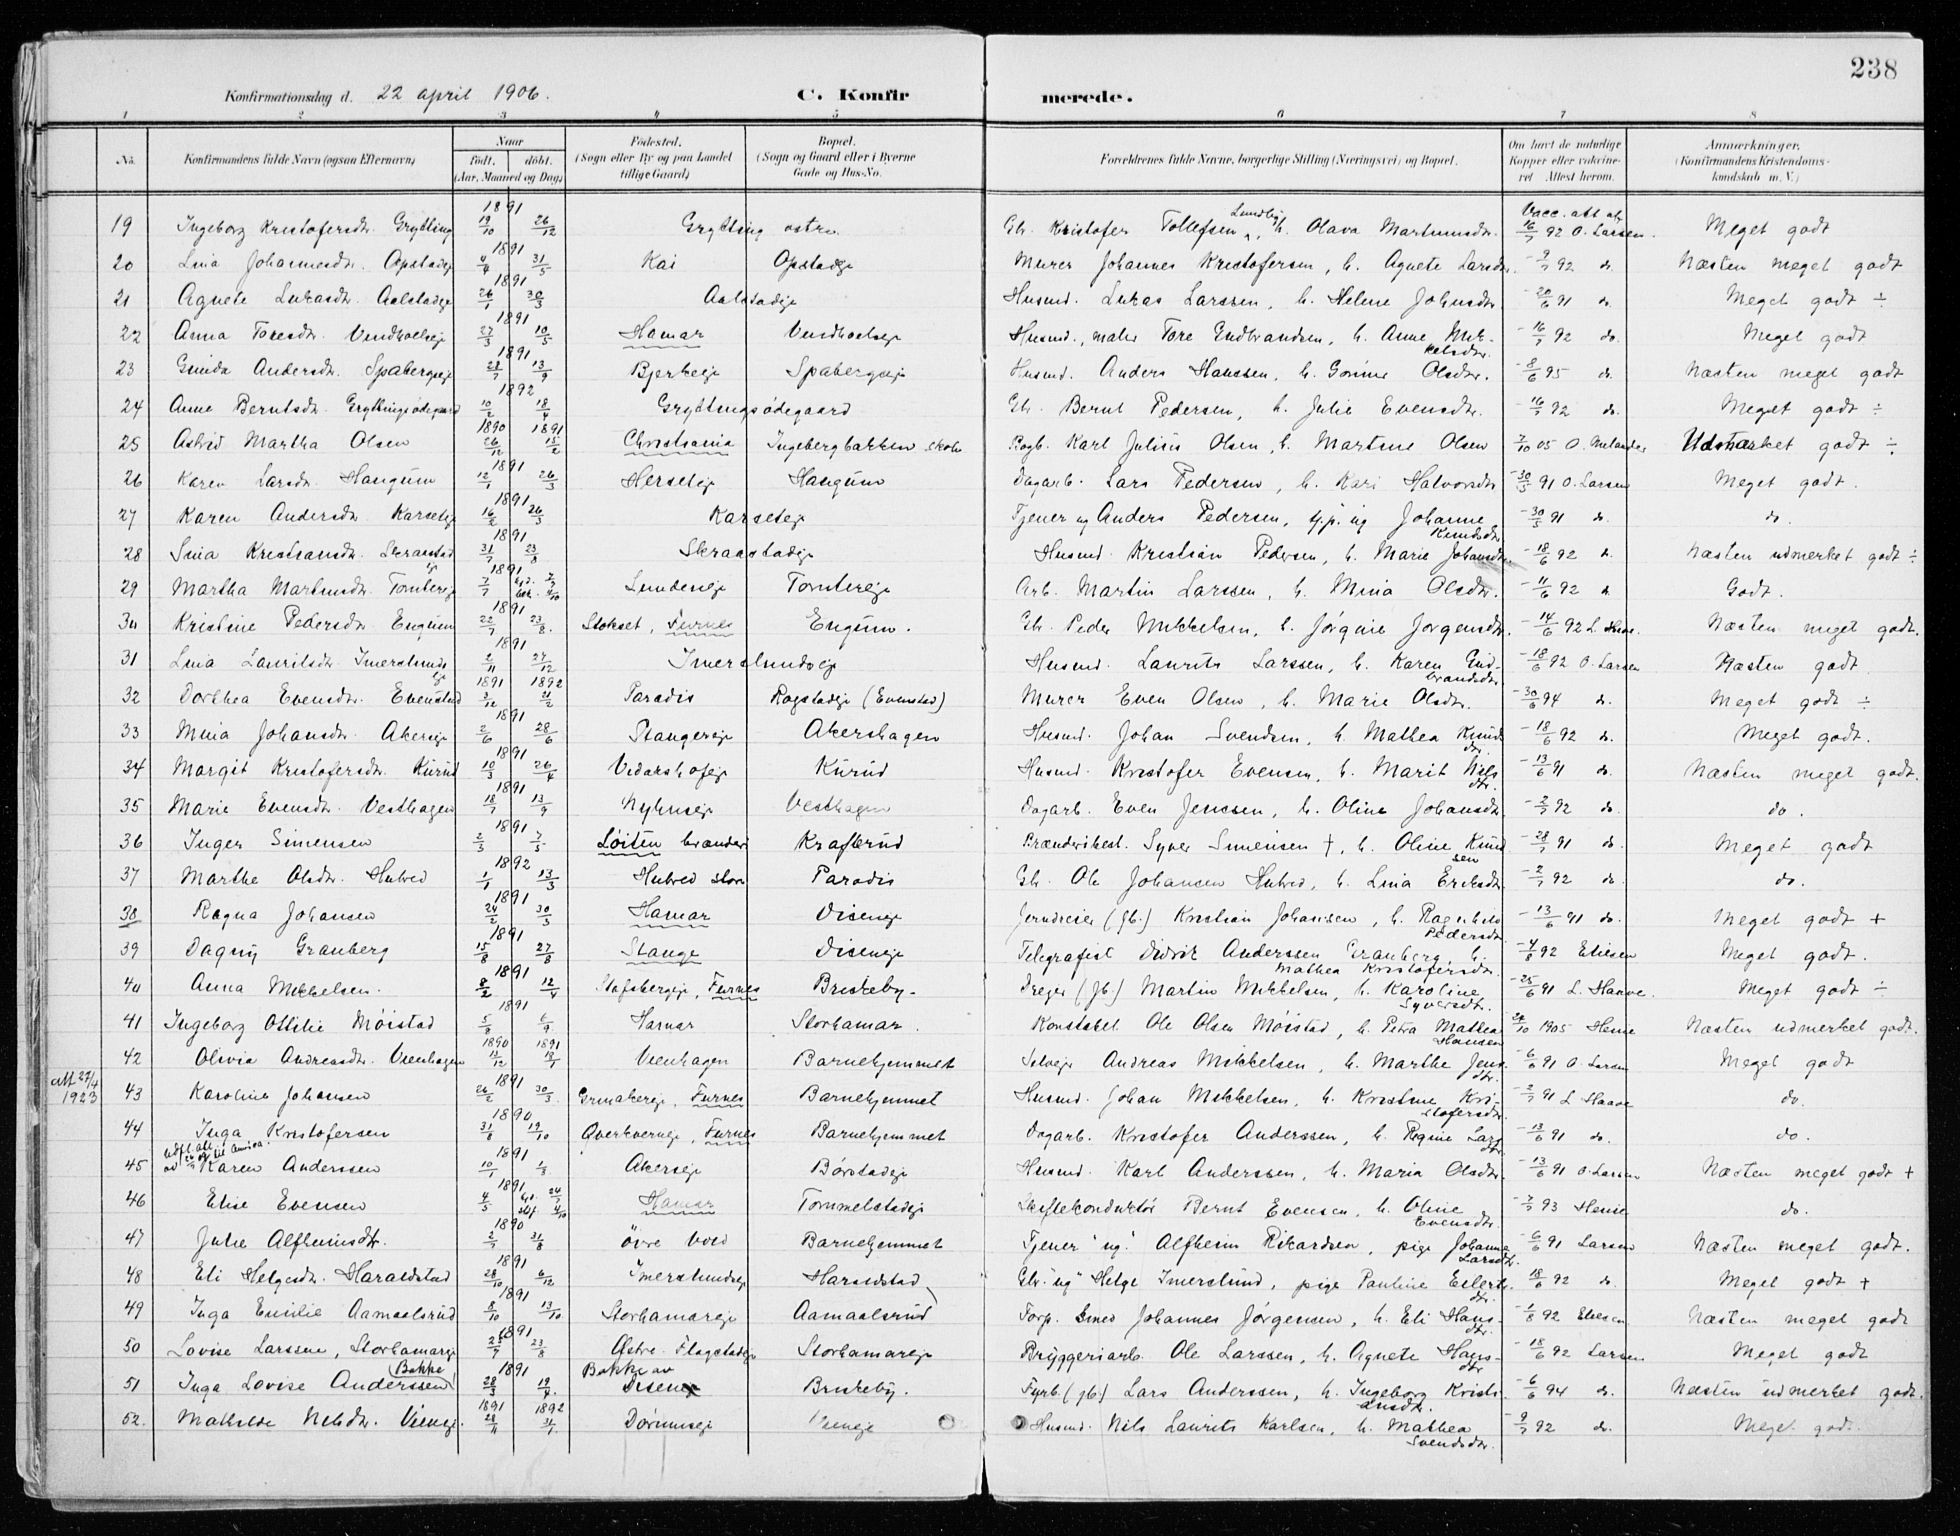 238
Konfirmationsdag d. 22 april 1906. C. Konfirmerede.
1 2 3 4 5 6 7 8
No. Konfirmandens fulde Navn (ogsaa Efternavn) Naar født. døbt. (Aar, Maaned og Dag) Fødested. (Sogn eller By og paa Landet tillige Gaard) Bopæl. (Sogn og Gaard eller i Byerne Gade og Hus-No. Forældrenes fulde Navne, borgerlige Stilling (Næringsvei) og Bopæl. Om havt de naturlige Kopper eller vaccineret Attest herom. Anmærkninger. (Konfirmandens Kristendomskundskab m. V.)
19 Ingeborg Kristofersdr. Grytting 1891 19/10 26/12 Grytting østre Gb. Kristofer Tollefsen Lundby, h. Olava Martinusdr. Vacc. att. af 16/7 92 O. Larsen. Meget godt
20 Lina Johannesdr. Opstadeje 1891 4/4 31/5 Kai Opstadeje Murer Johannes Kristofersen, h. Agnete Larsdr. - 9/7 92 do. Næsten meget godt
21 Agnete Lukasdr. Aalstadeje 1891 26/1 30/3 Aalstadeje Husmd. Lukas Larssen, h. Helene Johnsdr. - 20/6 91 do. Meget godt ÷
22 Anna Toresdr. Vendkvelseje 1891 27/3 10/5 Hamar Husmd., maler Tore Gudbrandsen, h. Anne Mikkelsdr. - 16/7 92 do. Meget godt
23 Gunda Andersdr. Spabergeje 1891 28/7 13/9 Bjerkeeje Spabergeje Husmd. Anders Hanssen, h. Olsdtr. - 8/6 95 do. Næsten meget godt
24 Anne Berntsdr. Gryttingsødegaard 1892 10/2 18/4 Gryttingsødegaard Gb. Bernt Pedersen, h. Julie Evensdtr. - 16/7 92 do. Meget godt ÷
25 Astrid Martha Olsen 1890 26/12 1891 15/2 Christiania Ingebergbakken skole Karl Julius Olsen, h. Martine Olsen 7/10 05 O. Melander Udmærket godt ÷
26 Karen Larsdr. Haugum 1891 12/1 26/3 Herseteje Haugum Dagarb. Lars Pedersen, h. Kari Halvorsdtr. - 30/5 91 O. Larsen Meget godt.
27 Karen Andersdr. Karseteje 1891 16/2 26/3 Karseteje Tjener ug Anders Pedersen, tj.p. ug Johanne Knudsdtr. - 30/5 91 do. do.
28 Lina Kristiansdr. Skraastadeje 1891 31/7 23/8 Skraastadeje Husmd. Kristian Pedersen, h. Marie Johansdtr. - 18/6 92 do. Næsten udmerket godt ÷
29 Martha Martinsdr. Tomtereje 1891 7/7 Lundeeje Tomtereje Arb. Martin Larssen, h. Mina Olsdtr. - 11/6 92 do. Godt.
30 Kristine Pedersdr. Engum 1891 22/7 23/8. Stokset, Furnes Engum. Gb. Peder Mikkelsen, h. Jørgine Jørgensdtr. - 14/6 92 Næsten meget godt.
31 Lina Lauritsdr. Imerslundeje 1891 2/11 27/12 Imerslundeje Husmd. Laurits Larssen, h. Karen Gudbrandsdtr. - 18/6 92 O. Larsen Næsten godt
32 Dorthea Evensdr. Evenstad 1891 3/12 1892 21/2 Paradis Rogstadeje (Evenstad) Murer Even Olsen, h. Marie Olsdtr. - 30/6 94 do. Meget godt ÷
33 Mina Johansdr. Akerseje 1891 2/6 28/6 Stangereje Akershagen Husmd. Johan Svendsen, h. Mathea Knudsdr. - 18/6 92 do. Meget godt.
34 Margit Kristofersdr. Kurud 1891 10/3 26/4 Vidarshofeje Kurud Husmd. Kristofer Evensen, h. Marit Nilsdtr. - 13/6 91 do. Næsten meget godt.
35 Marie Evensdr. Vesthagen 1891 18/7 13/9 Nyhuseje Vesthagen Dagarb. Even Jenssen, h. Oline Johansdtr. - 2/7 92 do. do.
36 Inger Simensen 1891 2/3 7/5 Løiten brænderi Krafterud Brænderibest. Syver Simensen †, h. Oline Knudsen - 28/7 91 do. Meget godt
37 Marthe Olsdr. Hubred 1892 1/1 13/3 Hubred store Paradis Gb. Ole Johansen Hubred, h. Lina Eriksdtr. - 2/7 92 do. do.
38 Ragna Johansen 1891 24/2 30/3 Hamar Diseneje Jerndreier (gb.) Kristian Johansen, h. Ragnhild Pedersdtr. - 13/6 91 do. Meget godt +
39 Dagny Granberg 1891 15/8 27/8 Stange Diseneje Telegrafist Didrik Anderssen Granberg, h. Mathea Kristofersdtr. - 4/6 92 Eliesen Meget godt.
40 Anna Mikkelsen. 1891 8/2 12/4 Stafsbergeje, Furnes Briskeby. Dreger (gb.) Martin Mikkelsen, h. Karoline Syversdtr. - 25/6 91 L. Haave. Meget godt ÷
41 Ingeborg Ottilie Møistad 1891 5/8 6/9 Hamar Storhamar. Konstabel Ole Olsen Møistad, h. Petra Mathea Hansen 1905 Næsten udmerket godt.
42 Olivia Andreasdr. Vienhagen 1890 1891 Vienhagen Barnehjemmet Selveje Andreas Mikkelsen, h. Marthe Jensdtr. - 6/6 91 O. Larsen Meget godt
att 27/4 1923 43 Karoline Johansen 1891 26/2 30/3 Furnes Barnehjemmet Husmd. Johan Mikkelsen, h. Kristine Kristofersdtr. - 2/7 91 L Haave do.
44 Inga Kristofersen 1890 31/8 19/10 Overkverneje, Furnes Barnehjemmet Dagarb. Kristofer Anderssen, h. Regine Larsdtr. - 13/6 91 do. do.
45 Karen Anderssen 1891 10/1 1/3 Akerseje Børstadeje Husmd. Karl Anderssen, h. Maria Olsdtr. - 13/6 91 O. Larsen Næsten meget godt +
46 Elise Evensen 1891 4/5 Hamar Tommelstadeje Skiftekonduktør Bernt Evensen, h. Oline Evensdtr. - 7/7 93 do.
47 Julie Alfheimsdtr. 1890 2/7 31/8 øvre Vold Barnehjemmet Tjener "ug." Alfheim Rikardsen, pige Johanne Larsdtr. - 6/6 91 Larsen Næsten meget godt.
48 Eli Helgesdr. Haraldstad 1891 28/10 6/12 Imerslundeje Haraldstad Gb. "ug" Helge Imerslund, pige Pauline Eilertsdtr. 18/6 92 do. Meget godt +
49 Inga Emilie Aamaalsrud 1891 8/10 13/10 Storhamareje Aamaalsrud Torp. smed Johannes Jørgensen, h. Eli Hansdtr. - 1/8 92 Eliesen Næsten meget godt
50 Lovise Larssen, Storhamareje 1891 25/7 23/8 Østre Flagstadeje Storhamareje Bryggeriarb. Ole Larssen, h. Agnete Hansdtr - 18/6 92 Larsen Meget godt
51 Inga Lovise Anderssen (Bakke) 1891 28/3 19/4 Bakke av Disen Briskeby. Fyrb. (gb.) Lars Anderssen, h. Ingeborg Kristiansdtr. - 6/6 94 do. Næsten udmerket godt.
52. Mathilde Nilsdr. Vieneje. 1891 28/11 1892 31/1 Dørumseje Vieneje Husmd. Nils Laurits Karlsen, h. Mathea Svendsdtr. 9/7 92 do. Meget godt.